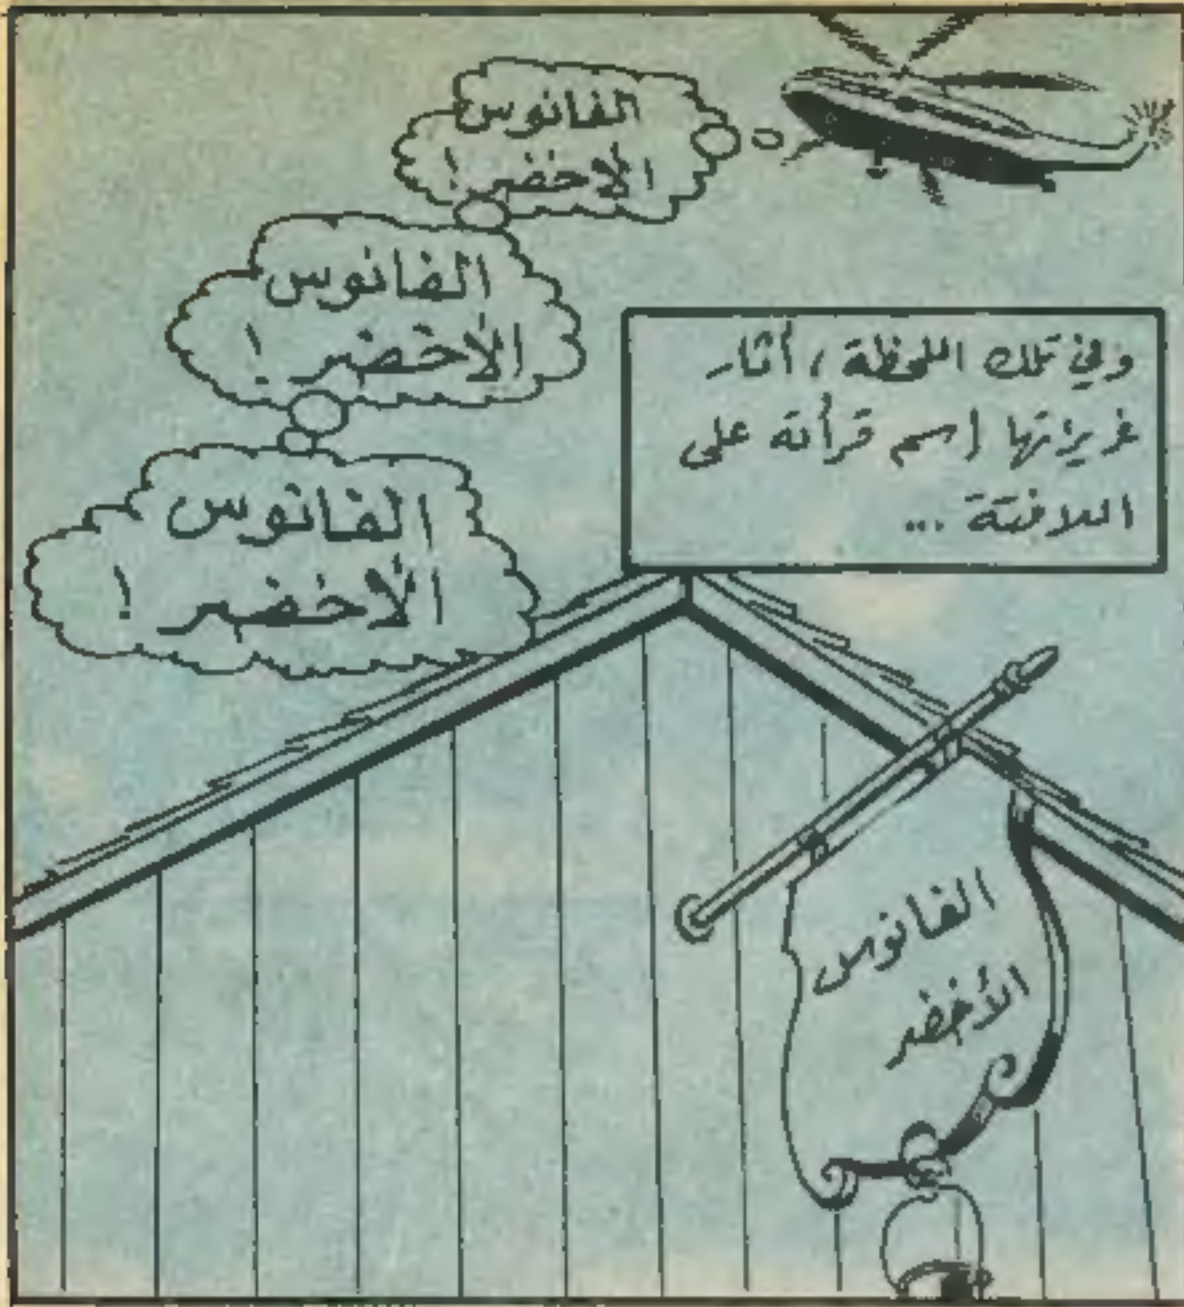 الفانوس
الاخضر !
الفانوس
الاخضر !
الفانوس
الاخضر !
وفي تلك اللحظة ، أثار
غريزتها اسم قرأته على
اللافتة ...
الفانوس
الأخضر